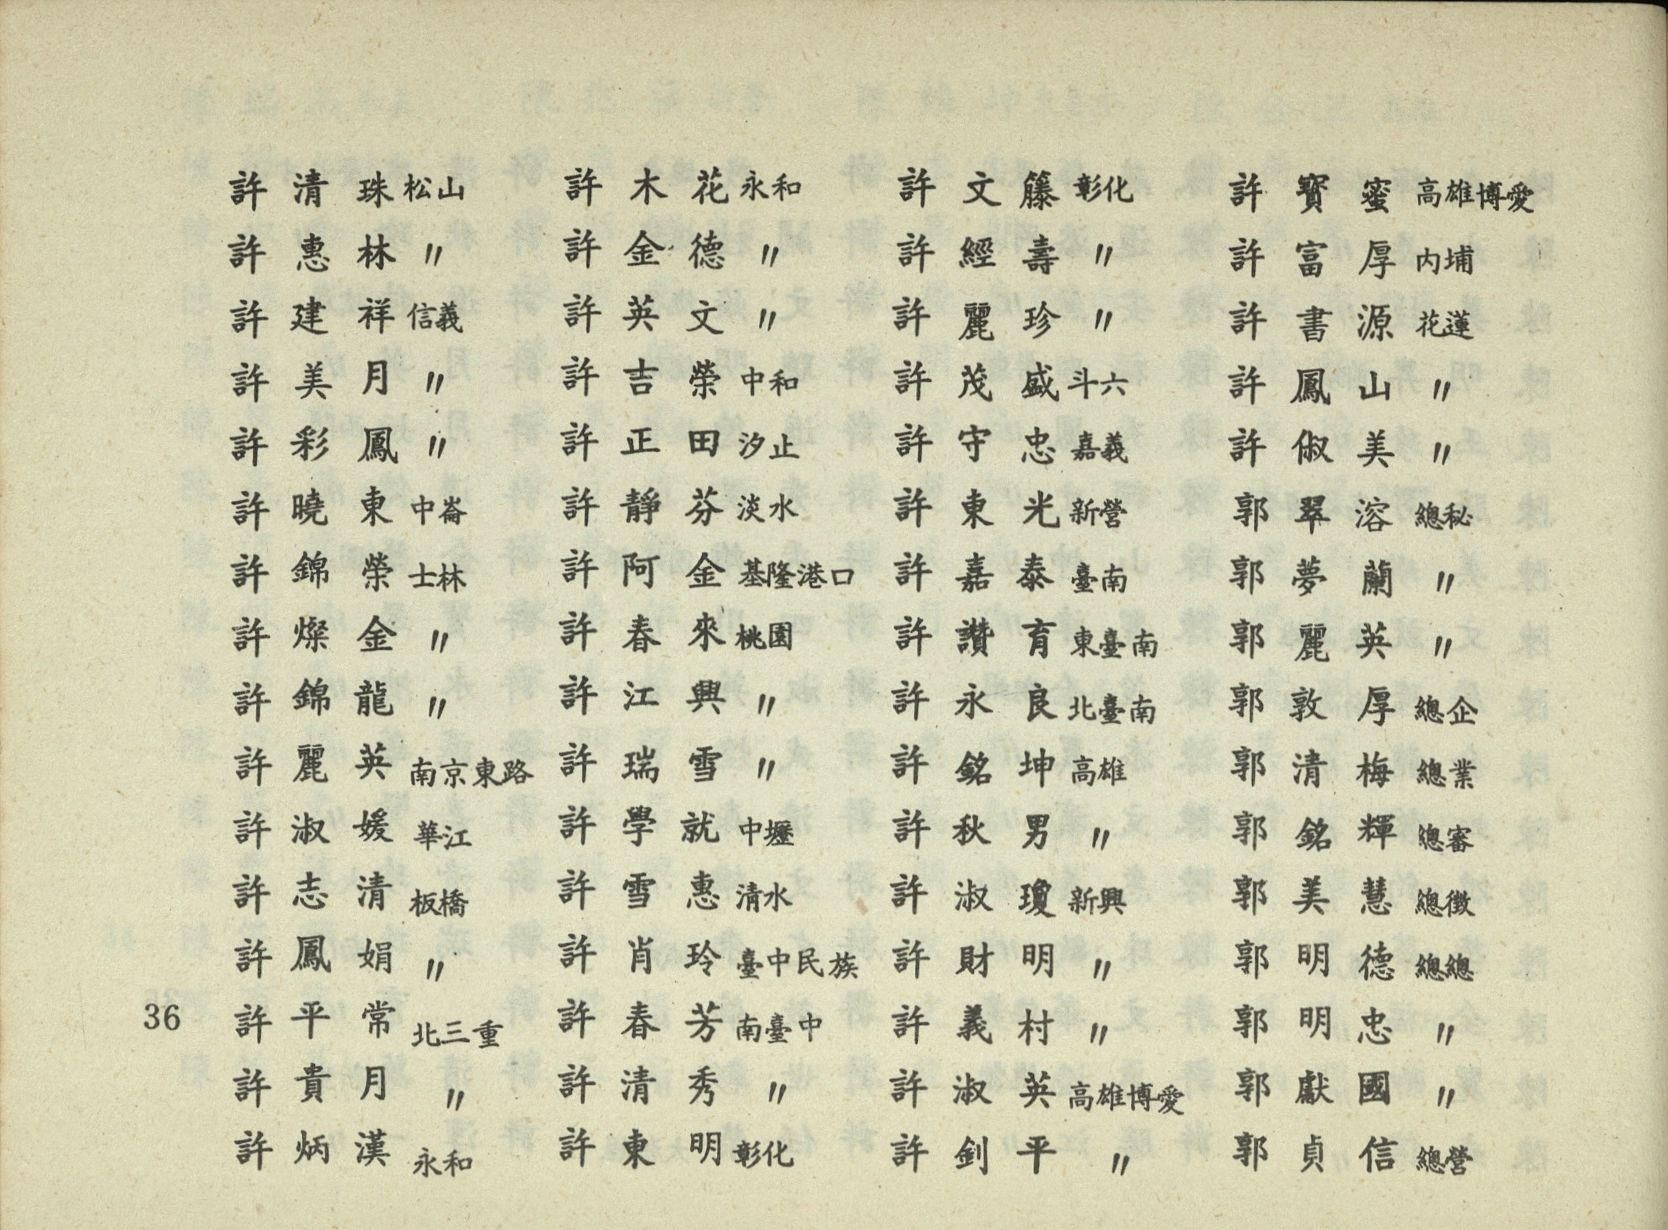 許清珠 松山
許惠林 〃
許建祥 信義
許美月 〃
許彩鳳 〃
許曉東 中崙
許錦榮 士林
許燦金 〃
許錦龍 〃
許麗英 南京東路
許淑媛 華江
許志清 板橋
許鳳娟 〃
許平常 北三重
許貴月 〃
許炳漢 永和
許木花 永和
許金德 〃
許英文 〃
許吉榮 中和
許正田 汐止
許靜芬 淡水
許阿金 基隆港口
許春來 桃園
許江興 〃
許瑞雪 〃
許學就 中壢
許雪惠 清水
許肖玲 臺中民族
許春芳 南臺中
許清秀 〃
許東明 彰化
許文籐 彰化
許經壽 〃
許麗珍 〃
許茂盛 斗六
許守忠 嘉義
許東光 新營
許嘉泰 臺南
許讚育 東臺南
許永良 北臺南
許銘坤 高雄
許秋男 〃
許淑瓊 新興
許財明 〃
許義村 〃
許淑英 高雄博愛
許釗平 〃
許寳蜜 高雄博愛
許富厚 内埔
許書源 花蓮
許鳳山 〃
許俶美 〃
郭翠溶 總秘
郭夢蘭 〃
郭麗英 〃
郭敦厚 總企
郭清梅 總業
郭銘輝 總審
郭美慧 總徵
郭明德 總總
郭明忠 〃
郭獻國 〃
郭貞信 總營
36